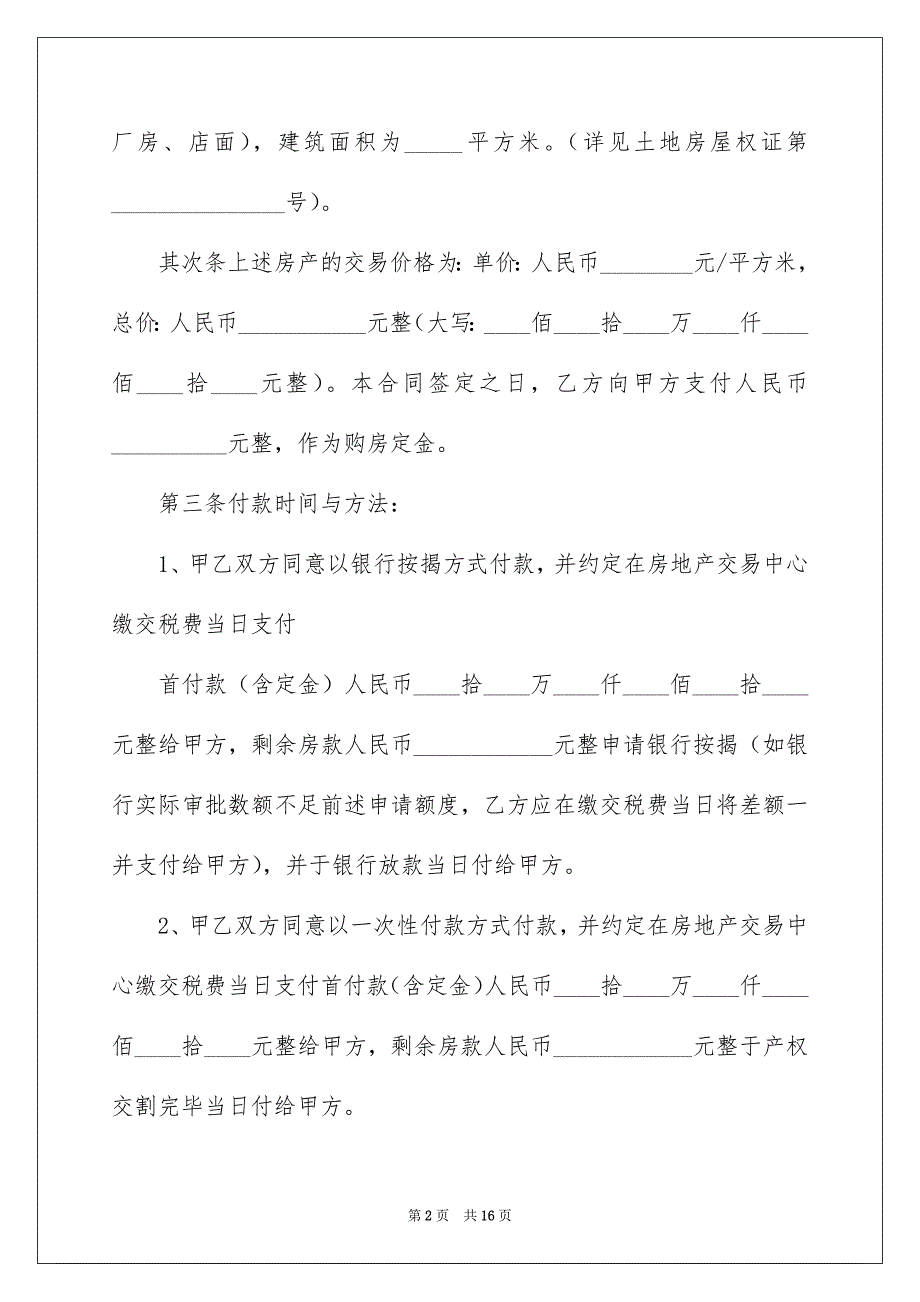 厂房、店面），建筑面积为_____平方米。（详见土地房屋权证第
_______________号）。
其次条上述房产的交易价格为：单价：人民币________元/平方米，
总价：人民币___________元整（大写：____佰____拾____万____仟____
佰____拾____元整）。本合同签定之日，乙方向甲方支付人民币
__________元整，作为购房定金。
第三条付款时间与方法：
1、甲乙双方同意以银行按揭方式付款，并约定在房地产交易中心
缴交税费当日支付
首付款（含定金）人民币____拾____万____仟____佰____拾____
元整给甲方，剩余房款人民币____________元整申请银行按揭（如银
行实际审批数额不足前述申请额度，乙方应在缴交税费当日将差额一
并支付给甲方），并于银行放款当日付给甲方。
2、甲乙双方同意以一次性付款方式付款，并约定在房地产交易中
心缴交税费当日支付首付款（含定金）人民币____拾____万____仟____
佰____拾____元整给甲方，剩余房款人民币____________元整于产权
交割完毕当日付给甲方。
第 2 页 共 16 页